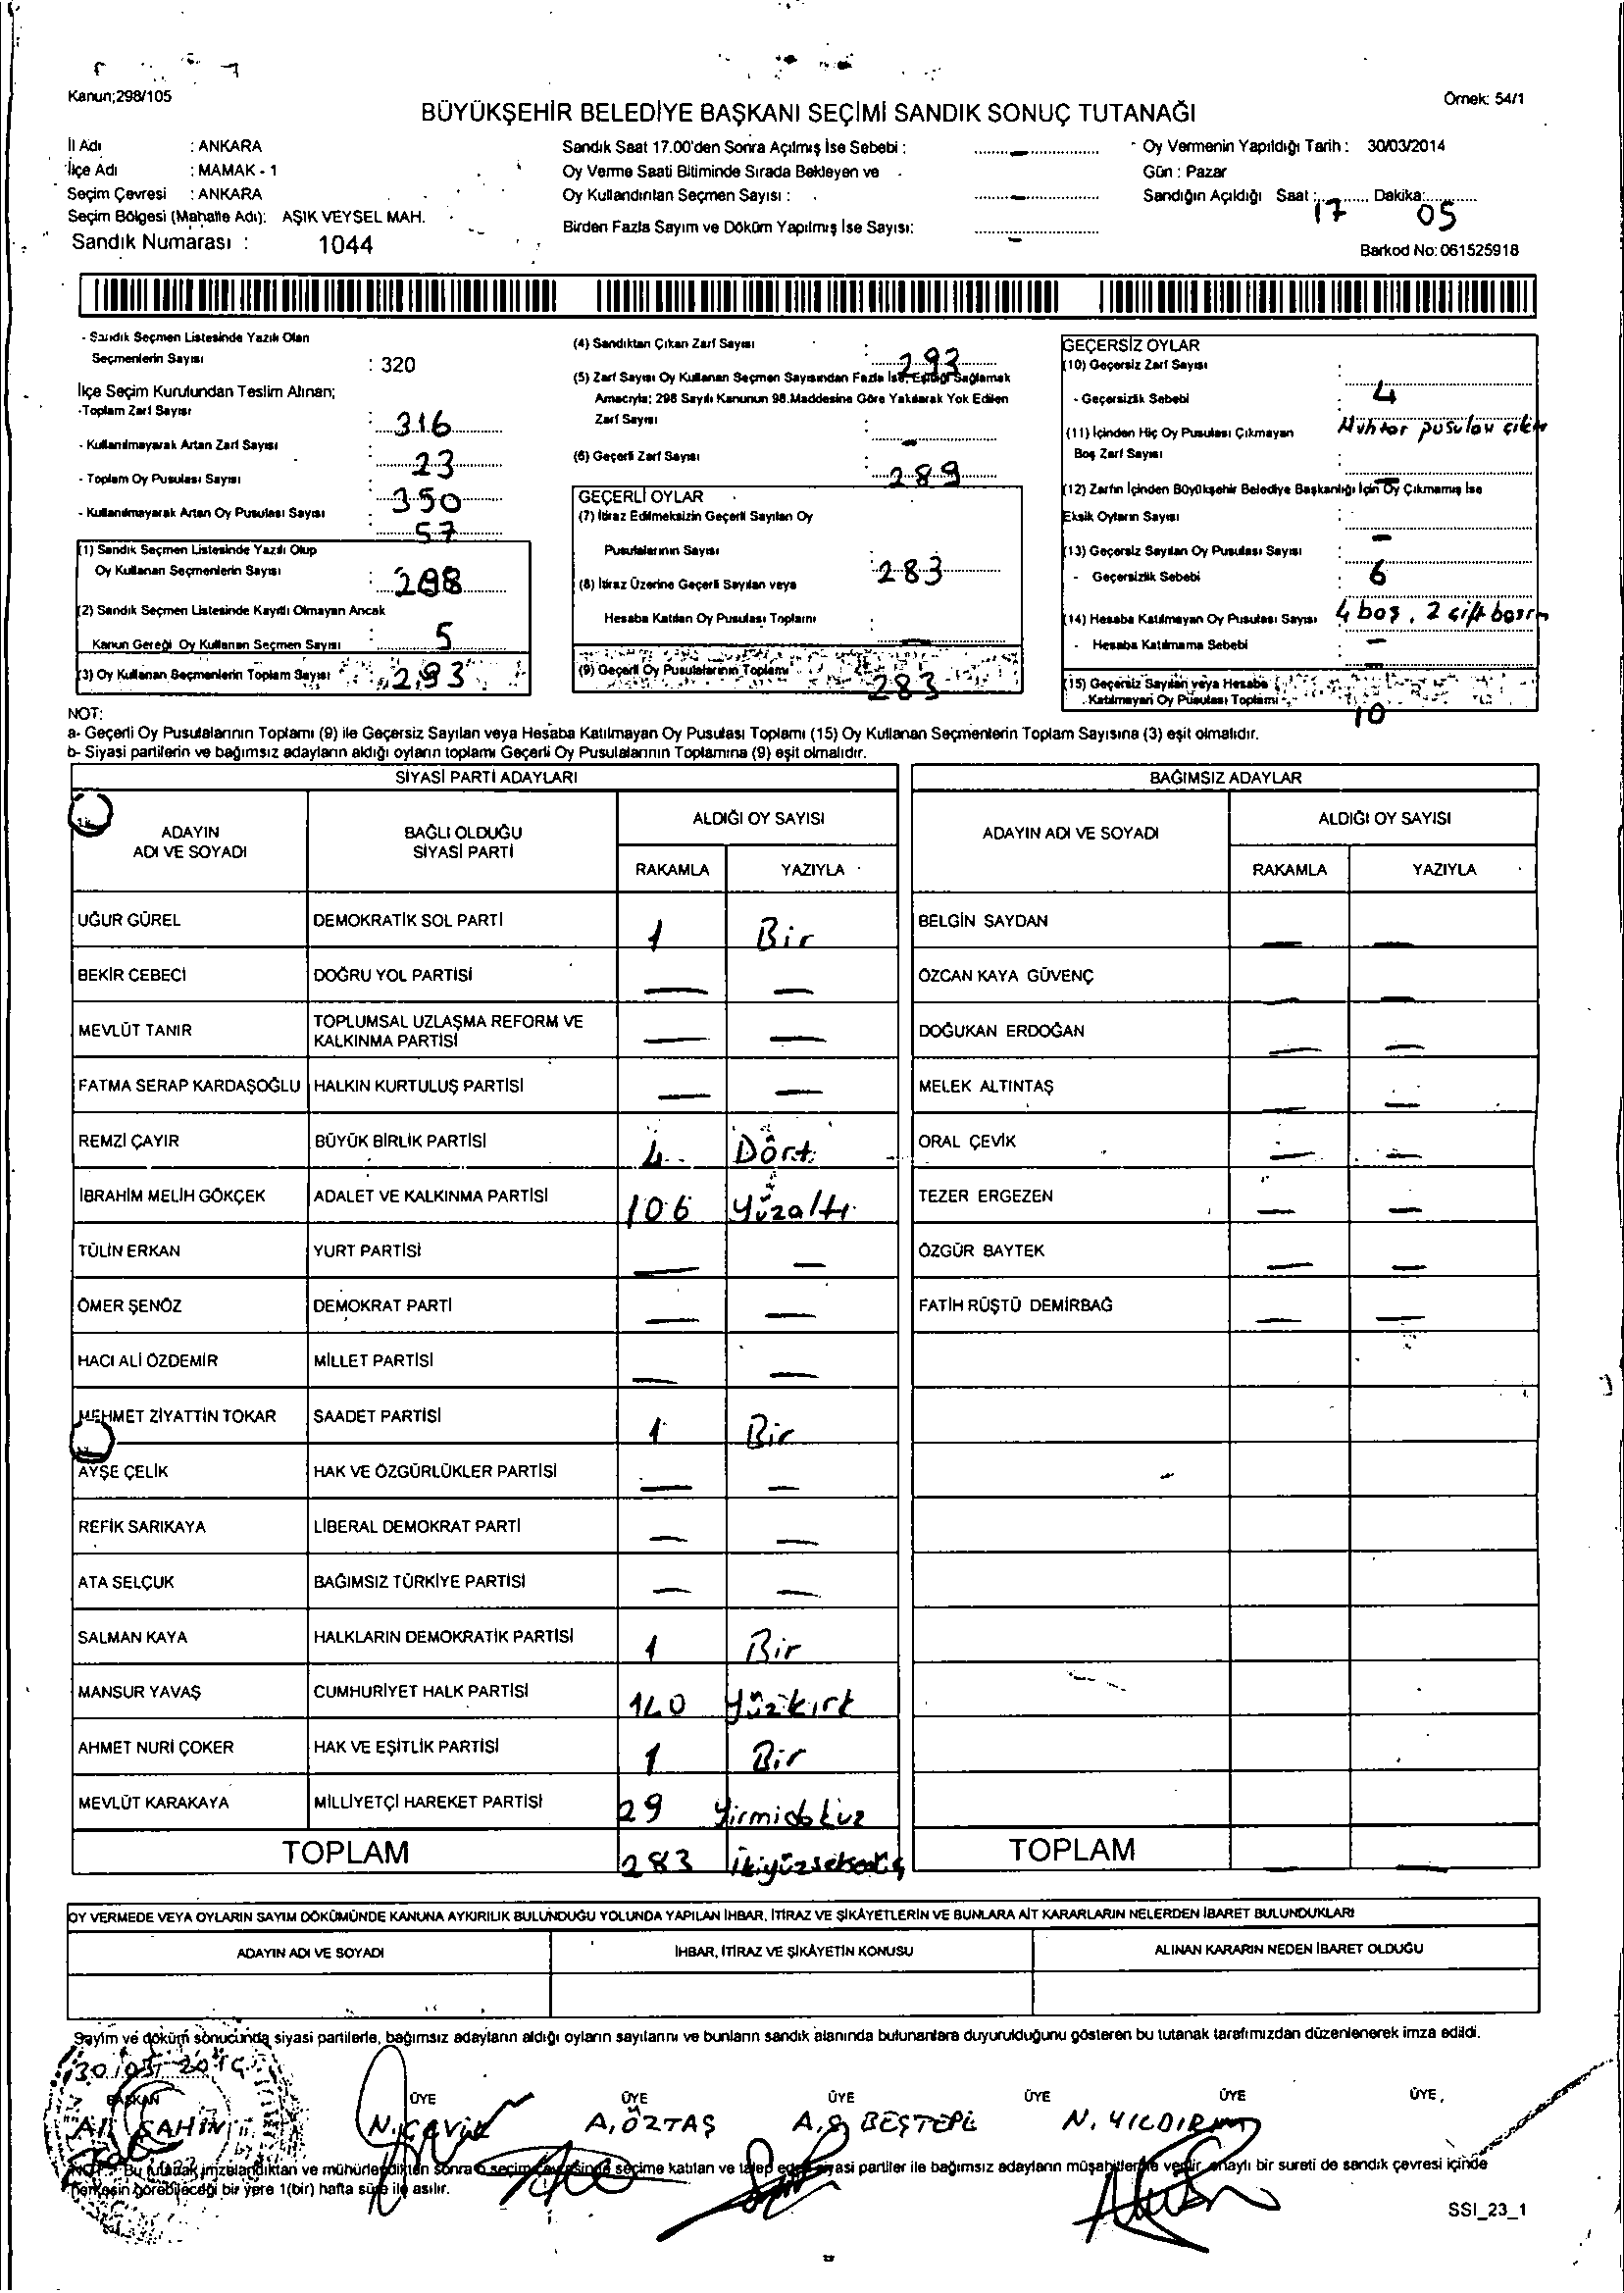 Kanun;298/105
Örnek: 54/1
BÜYÜKŞEHİR BELEDİYE BAŞKANI SEÇİMİ SANDIK SONUÇ TUTANAĞI
İl Adı : ANKARA
İlçe Adı : MAMAK - 1
Seçim Çevresi : ANKARA
Seçim Bölgesi (Mahalle Adı): AŞIK VEYSEL MAH.
Sandık Numarası : 1044
Sandık Saat 17.00'den Sonra Açılmış İse Sebebi : -
Oy Verme Saati Bitiminde Sırada Bekleyen ve
Oy Kullandırılan Seçmen Sayısı : -
Birden Fazla Sayım ve Döküm Yapılmış İse Sayısı: -
Oy Vermenin Yapıldığı Tarih : 30/03/2014
Gün : Pazar
Sandığın Açıldığı Saat : 17 Dakika: 05
Barkod No: 061525918
- Sandık Seçmen Listesinde Yazılı Olan
Seçmenlerin Sayısı : 320
İlçe Seçim Kurulundan Teslim Alınan;
-Toplam Zarf Sayısı : 316
- Kullanılmayarak Artan Zarf Sayısı : 23
- Toplam Oy Pusulası Sayısı : 350
- Kullanılmayarak Artan Oy Pusulası Sayısı : 57
(1) Sandık Seçmen Listesinde Yazılı Olup
Oy Kullanan Seçmenlerin Sayısı : 288
(2) Sandık Seçmen Listesinde Kayıtlı Olmayan Ancak
Kanun Gereği Oy Kullanan Seçmen Sayısı : 5
(3) Oy Kullanan Seçmenlerin Toplam Sayısı : 293
(4) Sandıktan Çıkan Zarf Sayısı : 293
(5) Zarf Sayısı Oy Kullanan Seçmen Sayısından Fazla İse, Eşitliği Sağlamak
Amacıyla; 298 Sayılı Kanunun 98.Maddesine Göre Yakılarak Yok Edilen
Zarf Sayısı : -
(6) Geçerli Zarf Sayısı : 289
GEÇERLİ OYLAR
(7) İtiraz Edilmeksizin Geçerli Sayılan Oy
Pusulalarının Sayısı : 283
(8) İtiraz Üzerine Geçerli Sayılan veya
Hesaba Katılan Oy Pusulası Toplamı : -
(9) Geçerli Oy Pusulalarının Toplamı 283
GEÇERSİZ OYLAR
(10) Geçersiz Zarf Sayısı : 4
- Geçersizlik Sebebi : Muhtar pusulası çıktı
(11) İçinden Hiç Oy Pusulası Çıkmayan
Boş Zarf Sayısı : -
(12) Zarfın İçinden Büyükşehir Belediye Başkanlığı İçin Oy Çıkmamış İse
Eksik Oyların Sayısı : -
(13) Geçersiz Sayılan Oy Pusulası Sayısı : 6
- Geçersizlik Sebebi : 4 boş, 2 çift basım
(14) Hesaba Katılmayan Oy Pusulası Sayısı : -
- Hesaba Katılmama Sebebi : -
(15) Geçersiz Sayılan veya Hesaba
Katılmayan Oy Pusulası Toplamı 10
NOT:
a- Geçerli Oy Pusulalarının Toplamı (9) ile Geçersiz Sayılan veya Hesaba Katılmayan Oy Pusulası Toplamı (15) Oy Kullanan Seçmenlerin Toplam Sayısına (3) eşit olmalıdır.
b- Siyasi partilerin ve bağımsız adayların aldığı oyların toplamı Geçerli Oy Pusulalarının Toplamına (9) eşit olmalıdır.
SİYASİ PARTİ ADAYLARI
BAĞIMSIZ ADAYLAR
ADAYIN ADI VE SOYADI
BAĞLI OLDUĞU SİYASİ PARTİ
ALDIĞI OY SAYISI
RAKAMLA YAZIYLA
ADAYIN ADI VE SOYADI
ALDIĞI OY SAYISI
RAKAMLA YAZIYLA
UĞUR GÜREL DEMOKRATİK SOL PARTİ 1 Bir BELGİN SAYDAN - -
BEKİR CEBECİ DOĞRU YOL PARTİSİ - - ÖZCAN KAYA GÜVENÇ - -
MEVLÜT TANIR TOPLUMSAL UZLAŞMA REFORM VE KALKINMA PARTİSİ - - DOĞUKAN ERDOĞAN - -
FATMA SERAP KARDAŞOĞLU HALKIN KURTULUŞ PARTİSİ - - MELEK ALTINTAŞ - -
REMZİ ÇAYIR BÜYÜK BİRLİK PARTİSİ 4 Dört ORAL ÇEVİK - -
İBRAHİM MELİH GÖKÇEK ADALET VE KALKINMA PARTİSİ 106 Yüzaltı TEZER ERGEZEN - -
TÜLİN ERKAN YURT PARTİSİ - - ÖZGÜR BAYTEK - -
ÖMER ŞENÖZ DEMOKRAT PARTİ - - FATİH RÜŞTÜ DEMİRBAĞ - -
HACI ALİ ÖZDEMİR MİLLET PARTİSİ - -
MEHMET ZİYATTİN TOKAR SAADET PARTİSİ 1 Bir
AYŞE ÇELİK HAK VE ÖZGÜRLÜKLER PARTİSİ - -
REFİK SARIKAYA LİBERAL DEMOKRAT PARTİ - -
ATA SELÇUK BAĞIMSIZ TÜRKİYE PARTİSİ - -
SALMAN KAYA HALKLARIN DEMOKRATİK PARTİSİ 1 Bir
MANSUR YAVAŞ CUMHURİYET HALK PARTİSİ 140 Yüzkırk
AHMET NURİ ÇOKER HAK VE EŞİTLİK PARTİSİ 1 Bir
MEVLÜT KARAKAYA MİLLİYETÇİ HAREKET PARTİSİ 29 Yirmidokuz
TOPLAM 283 İkiyüzseksenüç TOPLAM - -
OY VERMEDE VEYA OYLARIN SAYIM DÖKÜMÜNDE KANUNA AYKIRILIK BULUNDUĞU YOLUNDA YAPILAN İHBAR, İTİRAZ VE ŞİKÂYETLERİN VE BUNLARA AİT KARARLARIN NELERDEN İBARET BULUNDUKLARI
ADAYIN ADI VE SOYADI İHBAR, İTİRAZ VE ŞİKÂYETİN KONUSU ALINAN KARARIN NEDEN İBARET OLDUĞU
Sayım ve döküm sonucunda siyasi partilerle, bağımsız adayların aldığı oyların sayılarını ve bunların sandık alanında bulunanlara duyurulduğunu gösteren bu tutanak tarafımızdan düzenlenerek imza edildi.
BAŞKAN ÜYE ÜYE ÜYE ÜYE ÜYE ÜYE
ŞAHİN N. ÇEVİK A. ÖZTAŞ A.Ş. BEŞTEPE N. YILDIRIM
NOT: Bu tutanak imzalandıktan ve mühürlendikten sonra o seçim çevresinde seçime katılan ve talep eden siyasi partiler ile bağımsız adayların müşahitlerine verilir, onaylı bir sureti de sandık çevresi içinde
herkesin görebileceği bir yere 1(bir) hafta süre ile asılır.
SSI_23_1